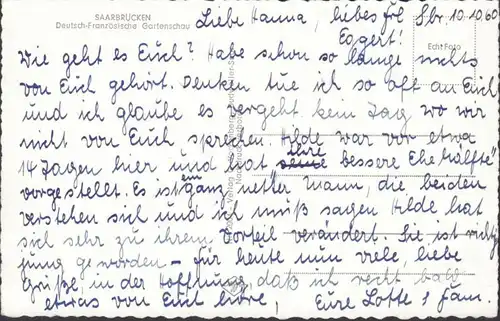 SAARBRÜCKEN
Deutsch-Französische Gartenschau
Echt Foto
Sbr. 10.10.60
Liebe Hanna, liebes Frl
Eggert!
Wie geht es Euch? Habe schon so lange nichts
von Euch gehört. Denken tue ich so oft an Euch
und ich glaube es vergeht kein Tag wo wir
nicht von Euch sprechen. Hilde war vor etwa
14 Tagen hier und hat ihre bessere Ehehälfte
vorgestellt. Es ist ein ganz netter Mann, die beiden
verstehen sich und ich muß sagen Hilde hat
sich sehr zu ihrem Vorteil verändert. Sie ist richtig
jung geworden – für heute nun viele, liebe
Grüße, in der Hoffnung, daß ich recht bald
etwas von Euch höre, Eure Lotte & Fam.